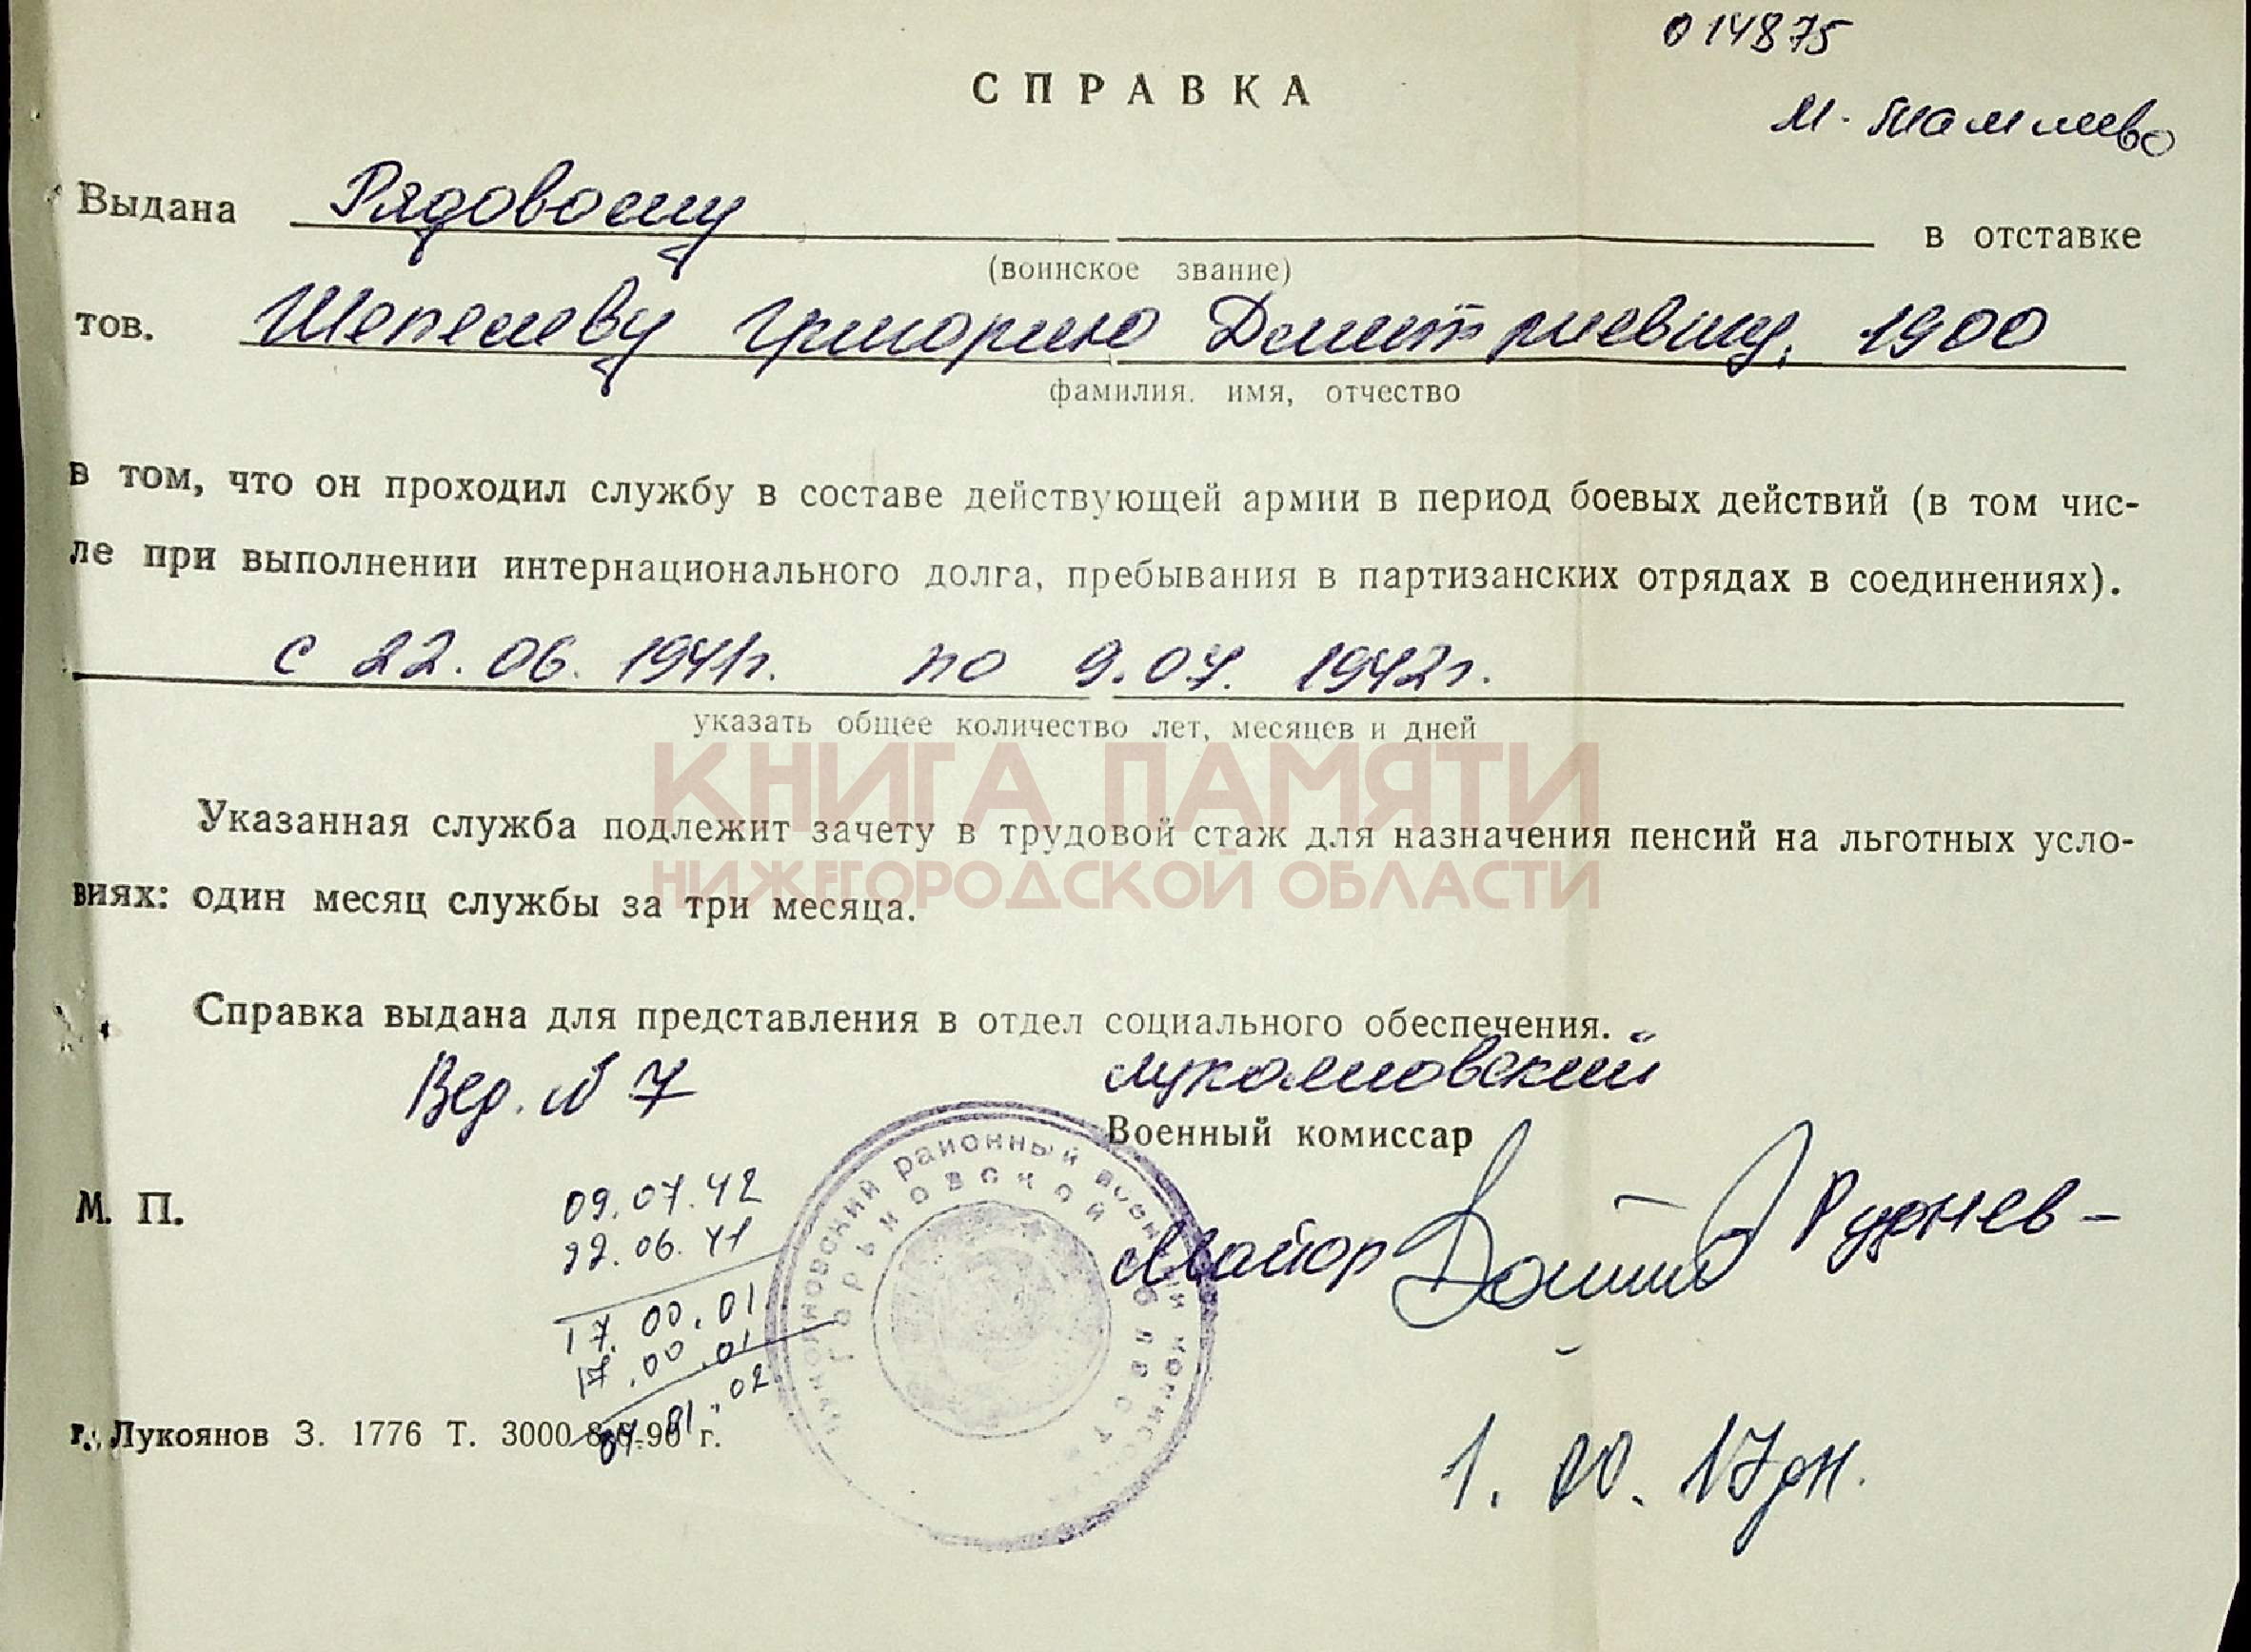 014875
СПРАВКА
М.
Выдана Рядовому в отставке
(воинское звание)
тов. Шепелеву Григорию Дмитриевичу, 1900
фамилия, имя, отчество
в том, что он проходил службу в составе действующей армии в период боевых действий (в том чис-
ле при выполнении интернационального долга, пребывания в партизанских отрядах в соединениях).
с 22.06.1941г. по 9.07.1942г.
указать общее количество лет, месяцев и дней
КНИГА ПАМЯТИ
Указанная служба подлежит зачету в трудовой стаж для назначения пенсий на льготных усло-
НИЖЕГОРОДСКОЙ ОБЛАСТИ
виях: один месяц службы за три месяца.
Справка выдана для представления в отдел социального обеспечения.
Вед. N 7
Лукояновский
Военный комиссар
М. П.
Майор Руднев
09.07.42
22.06.41
17.00.01
17.00.01
01.02
Лукояновский районный военный комиссариат
Горьковской области
г. Лукоянов З. 1776 Т. 3000 90 г.
1. 00. 17дн.